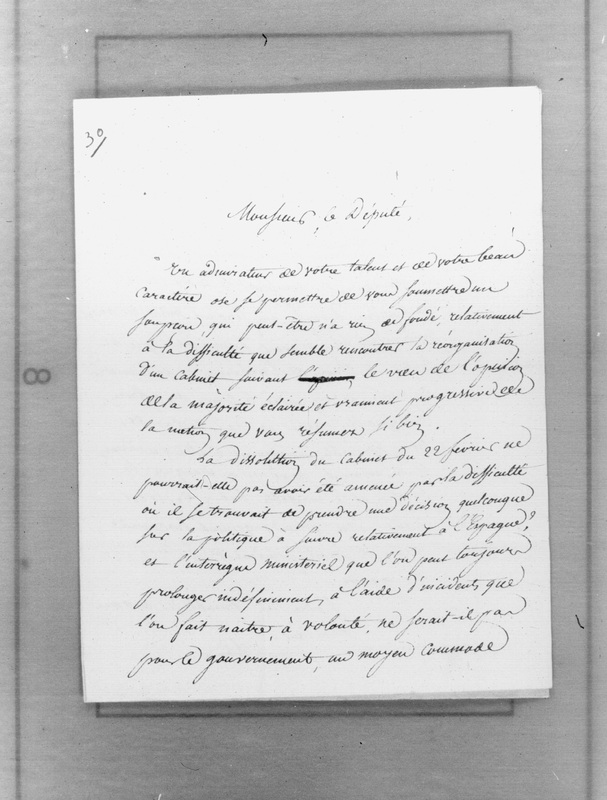 30/
Monsieur le Député,
Un admirateur de votre talent et de votre beau
caractère ose se permettre de vous soumettre un
soupçon, qui peut-être n'a rien de fondé, relativement
à la difficulté que semble rencontrer la réorganisation
d'un cabinet suivant le vœu de l'opinion
de la majorité éclairée et vraiment progressive de
la nation que vous résumez si bien.
La dissolution du cabinet du 22 février ne
pourrait-elle pas avoir été amenée par la difficulté
où il se trouvait de prendre une décision quelconque
sur la politique à suivre relativement à l'Espagne?
et l'interrègne ministériel que l'on peut toujours
prolonger indéfiniment, à l'aide d'incidents que
l'on fait naitre, à volonté, ne serait-il pas
pour le gouvernement, un moyen commode
8